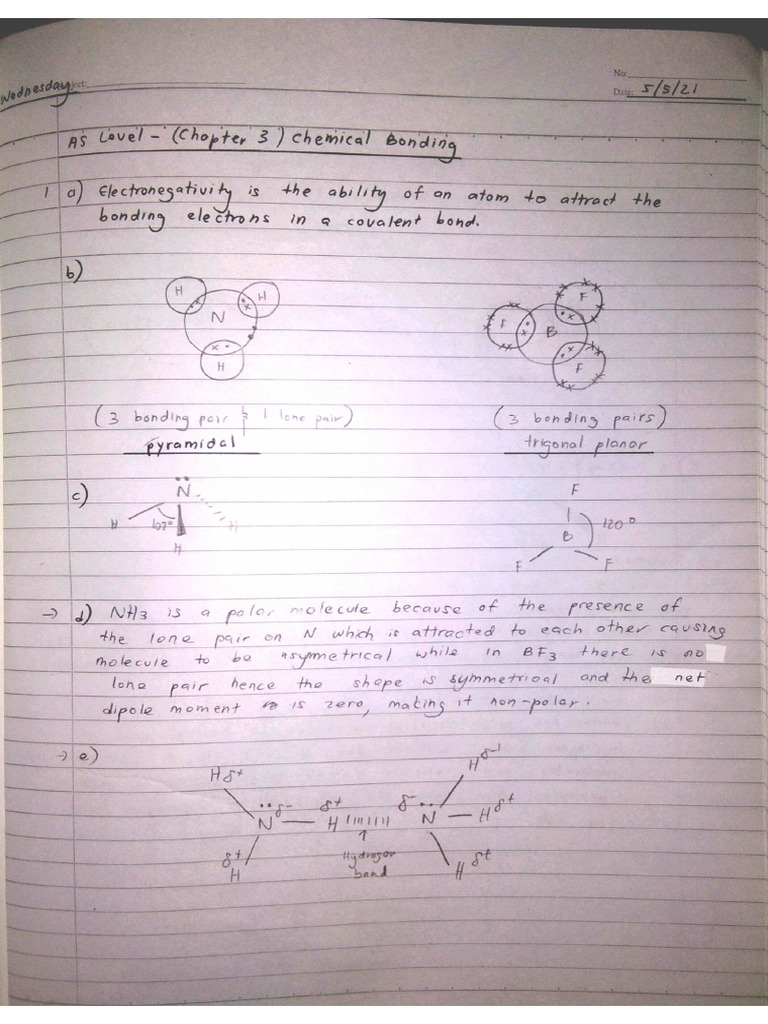 No:
Wednesday ject:
Date: 5/5/21
AS Level - (Chapter 3) Chemical Bonding
1 a) Electronegativity is the ability of an atom to attract the
bonding electrons in a covalent bond.
b)
H H F
N F B
H F
(3 bonding pair & 1 lone pair) (3 bonding pairs)
pyramidal trigonal planar
c) N F
H 107° H B 120°
H F F
→ d) NH3 is a polar molecule because of the presence of
the lone pair on N which is attracted to each other causing
molecule to be asymmetrical while in BF3 there is no
lone pair hence the shape is symmetrical and the net
dipole moment is zero, making it non-polar.
→ e)
Hδ+ Hδ-1
Nδ- δ+ H δ- N Hδ+
δ+ H Hydrogen bond H δ+